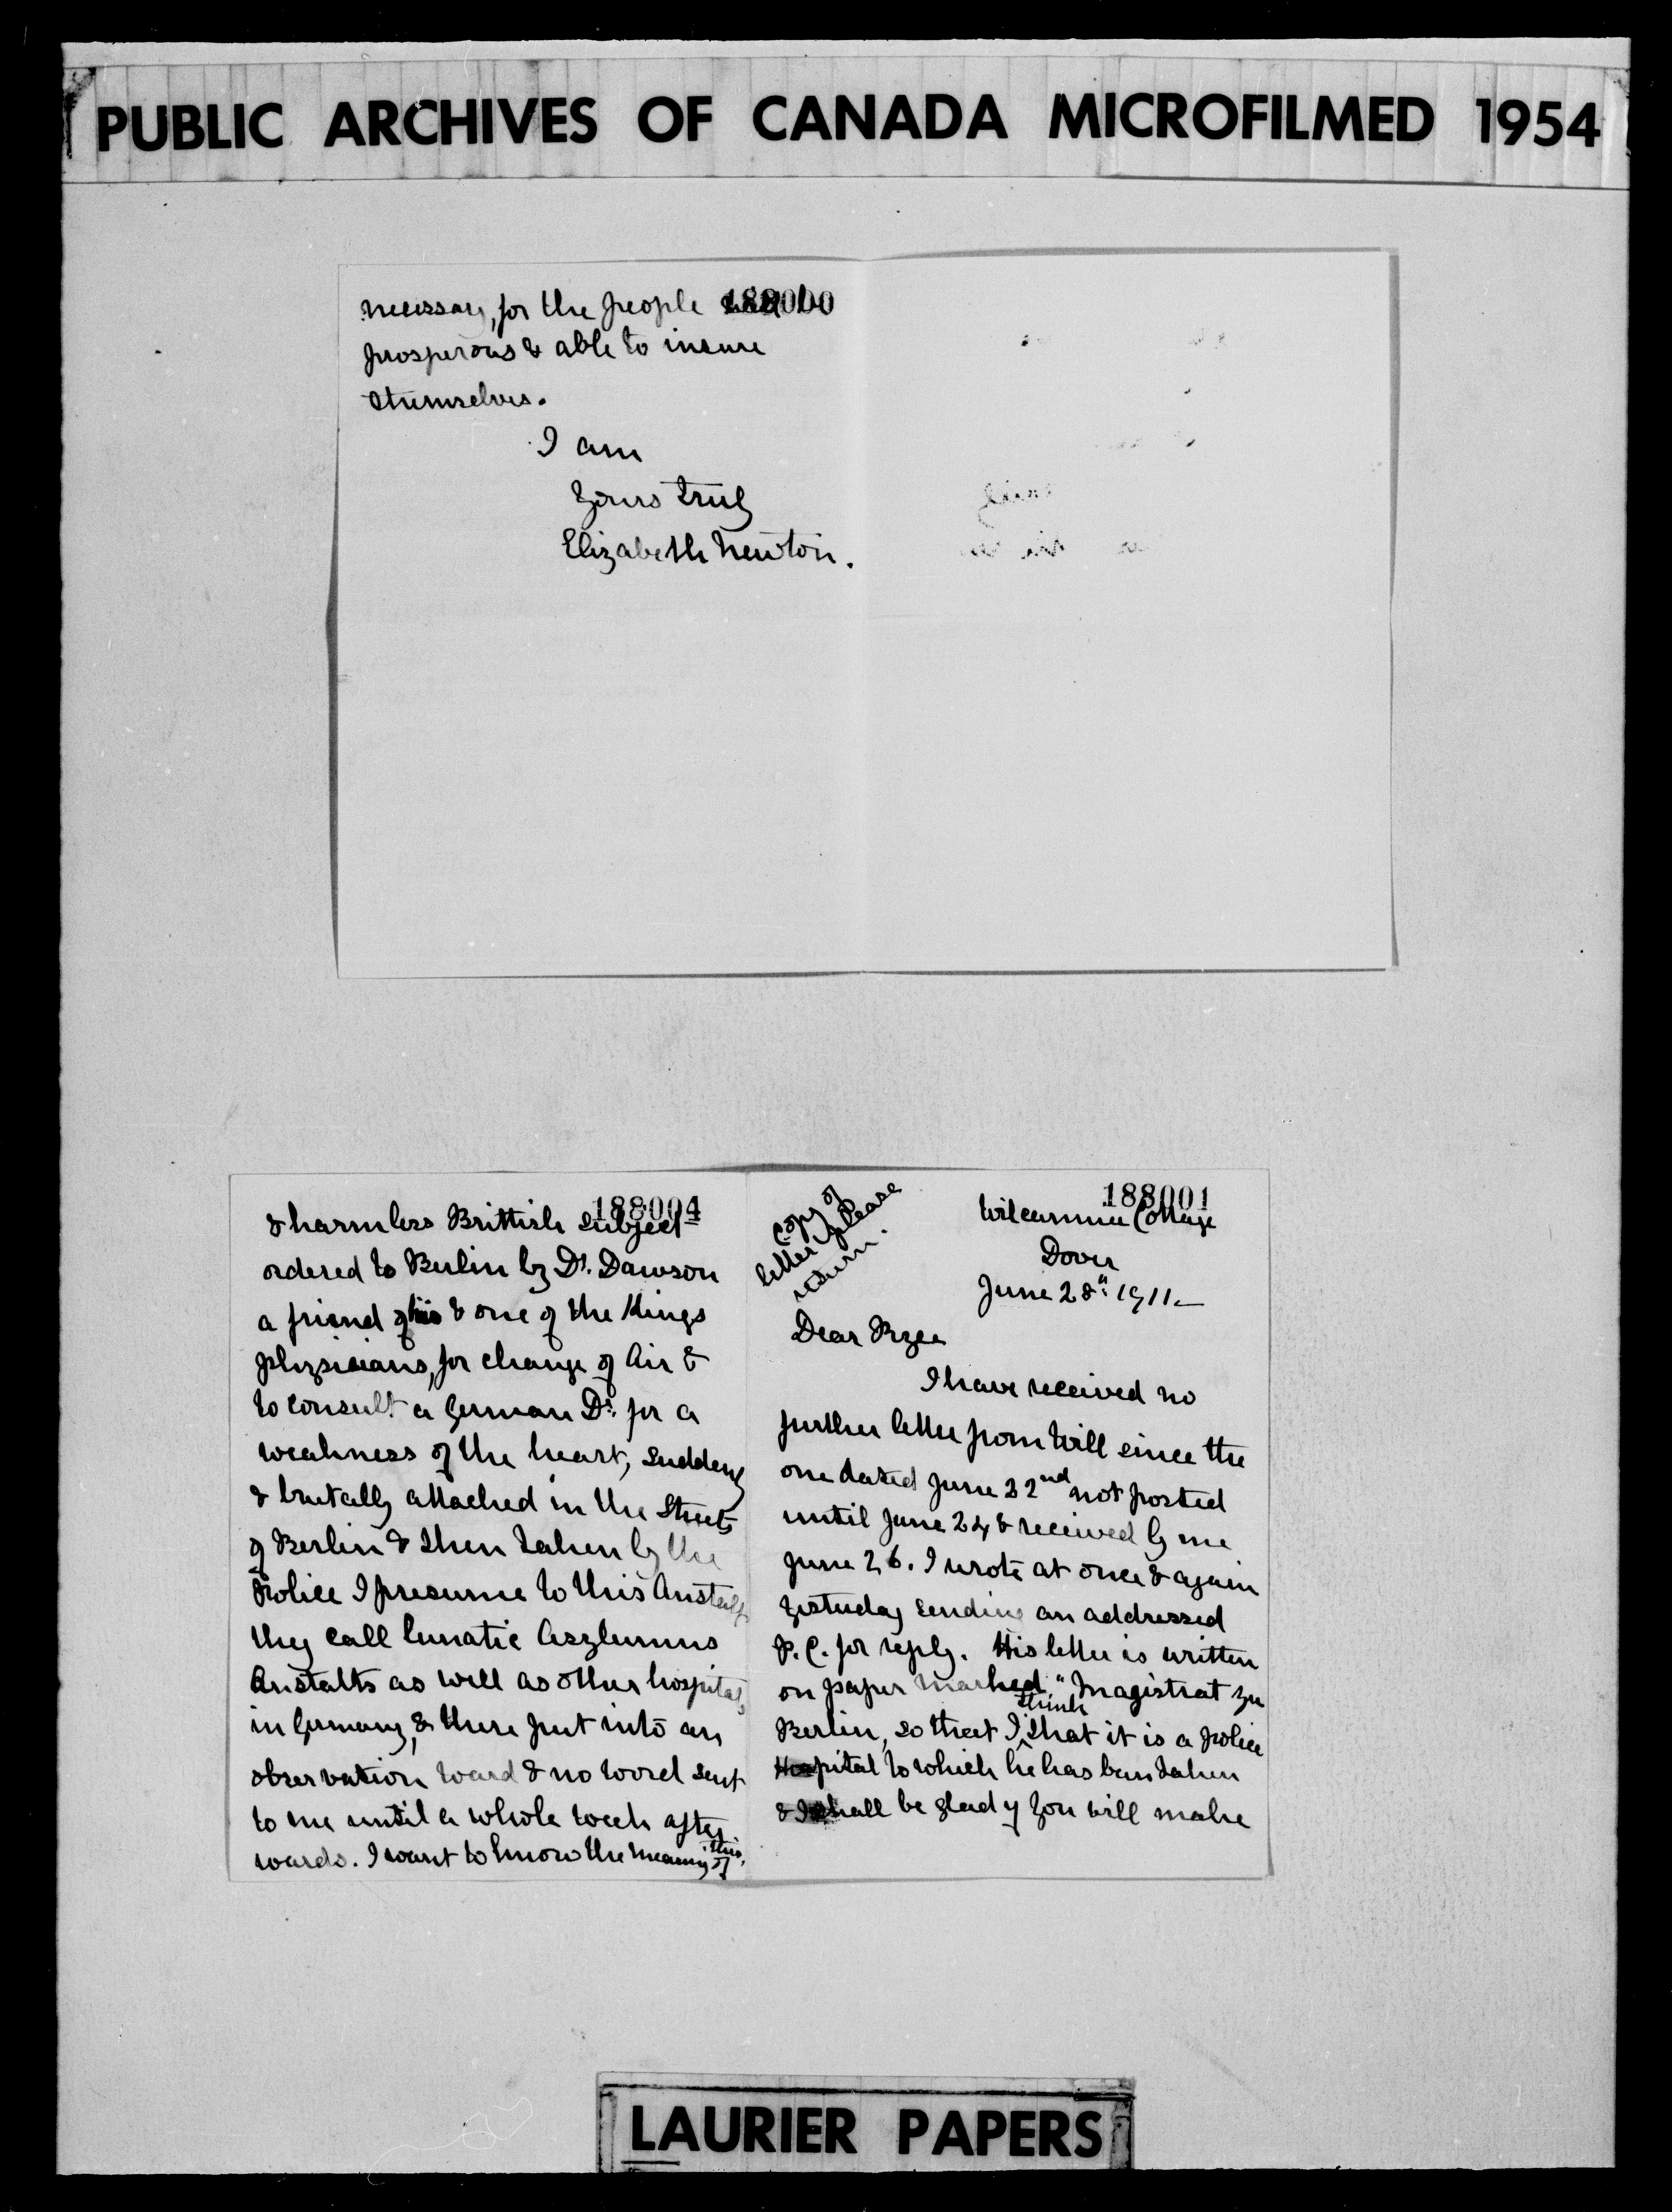 PUBLIC ARCHIVES OF CANADA MICROFILMED 1954
188000
necessary, for the people will be
prosperous & able to insure
themselves.
I am
Yours truly
Elizabeth Newton.
188004
& harmless Brittish subject
ordered to Berlin by Dr. Dawson
a friend of his & one of the Kings
physicians, for change of air &
to consult a German Dr. for a
weakness of the heart, suddenly
& brutally attacked in the streets
of Berlin & then taken by the
Police I presume to this Anstalt
they call lunatic Asylumns
Anstalts as well as other hospitals
in Germany, & there put into an
observation ward & no word sent
to me until a whole week after
wards. I want to know the meaning of this.
188001
copy of
letter please
return.
Cottage
Dover
June 28th 1911.
Dear
I have received no
further letter from Will since the
one dated June 22nd not posted
until June 24 & received by me
June 26. I wrote at once & again
yesterday sending an addressed
P.C. for reply. His letter is written
on paper marked "Magistrat zu
Berlin, so that I think that it is a police
Hospital to which he has been taken
& I shall be glad if you will make
LAURIER PAPERS